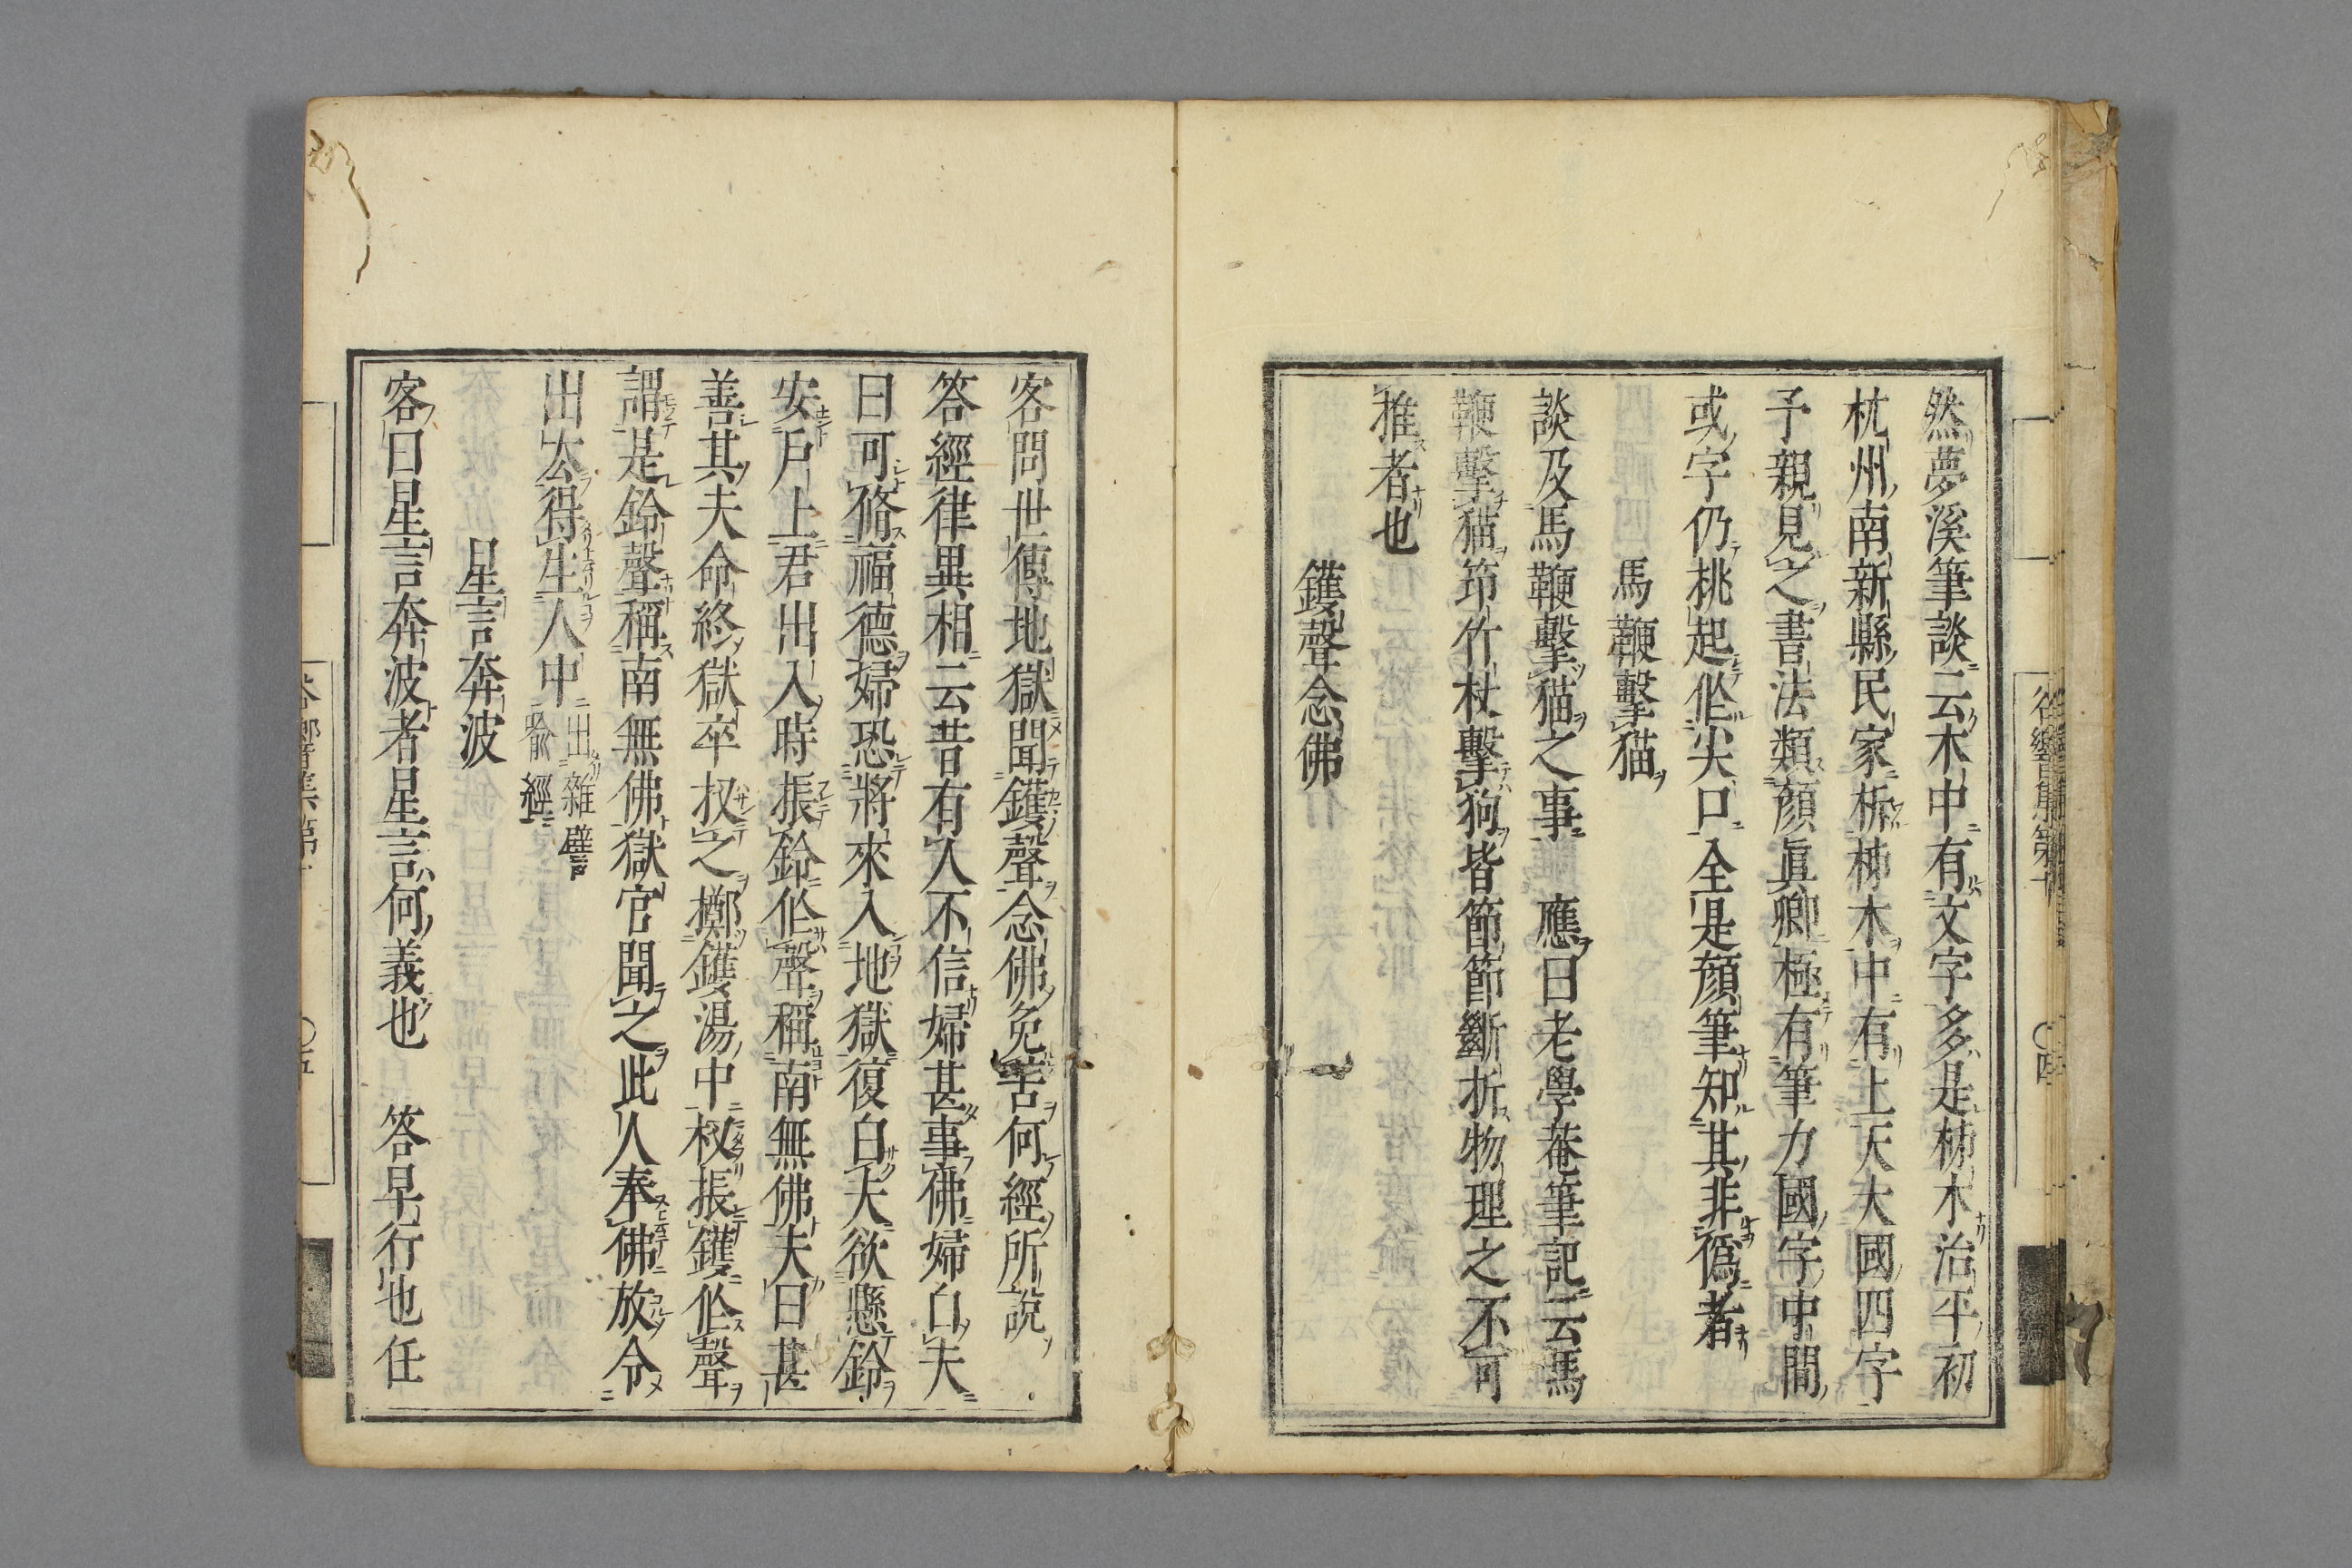 然夢溪筆談云木中有文字多是柿木治平初
杭州南新縣民家柝柿木中有上天大國四字
予親見之書法類顏眞卿極有筆力國字中間
或字仍挑起作尖口全是顏筆知其非僞者
馬鞭擊猫
談及馬鞭擊猫之事　應曰老學菴筆記云馬
鞭擊猫筇竹杖擊狗皆節節斷折物理之不可
推者也
鑊聲念佛
客問世傳地獄聞鑊聲念佛免苦何經所說
答經律異相云昔有人不信婦甚事佛婦白夫
曰可脩福德婦恐將來入地獄復白夫欲懸鈴
安戶上君出入時振鈴作聲稱南無佛夫曰甚
善其夫命終獄卒扠之擲鑊湯中杈振鑊作聲
謂是鈴聲稱南無佛獄官聞之此人奉佛放令
出去得生人中出雜譬
喻經
星言奔波
客曰星言奔波者星言何義也　答早行也任